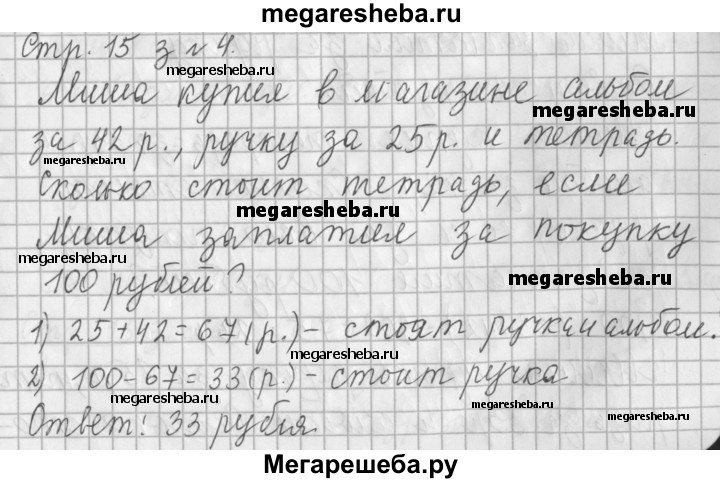 megaresheba.ru
Стр. 15 з № 4.
megaresheba.ru
Миша купил в магазине альбом
megaresheba.ru
за 42 р., ручку за 25 р. и тетрадь.
megaresheba.ru
Сколько стоит тетрадь, если
megaresheba.ru
Миша заплатил за покупку
megaresheba.ru
100 рублей?
megaresheba.ru
1) 25+42=67(р.)- стоят ручка и альбом.
megaresheba.ru
2) 100-67=33(р.)- стоит ручка
megaresheba.ru
megaresheba.ru
Ответ: 33 рубля.
megaresheba.ru
Мегарешеба.ру